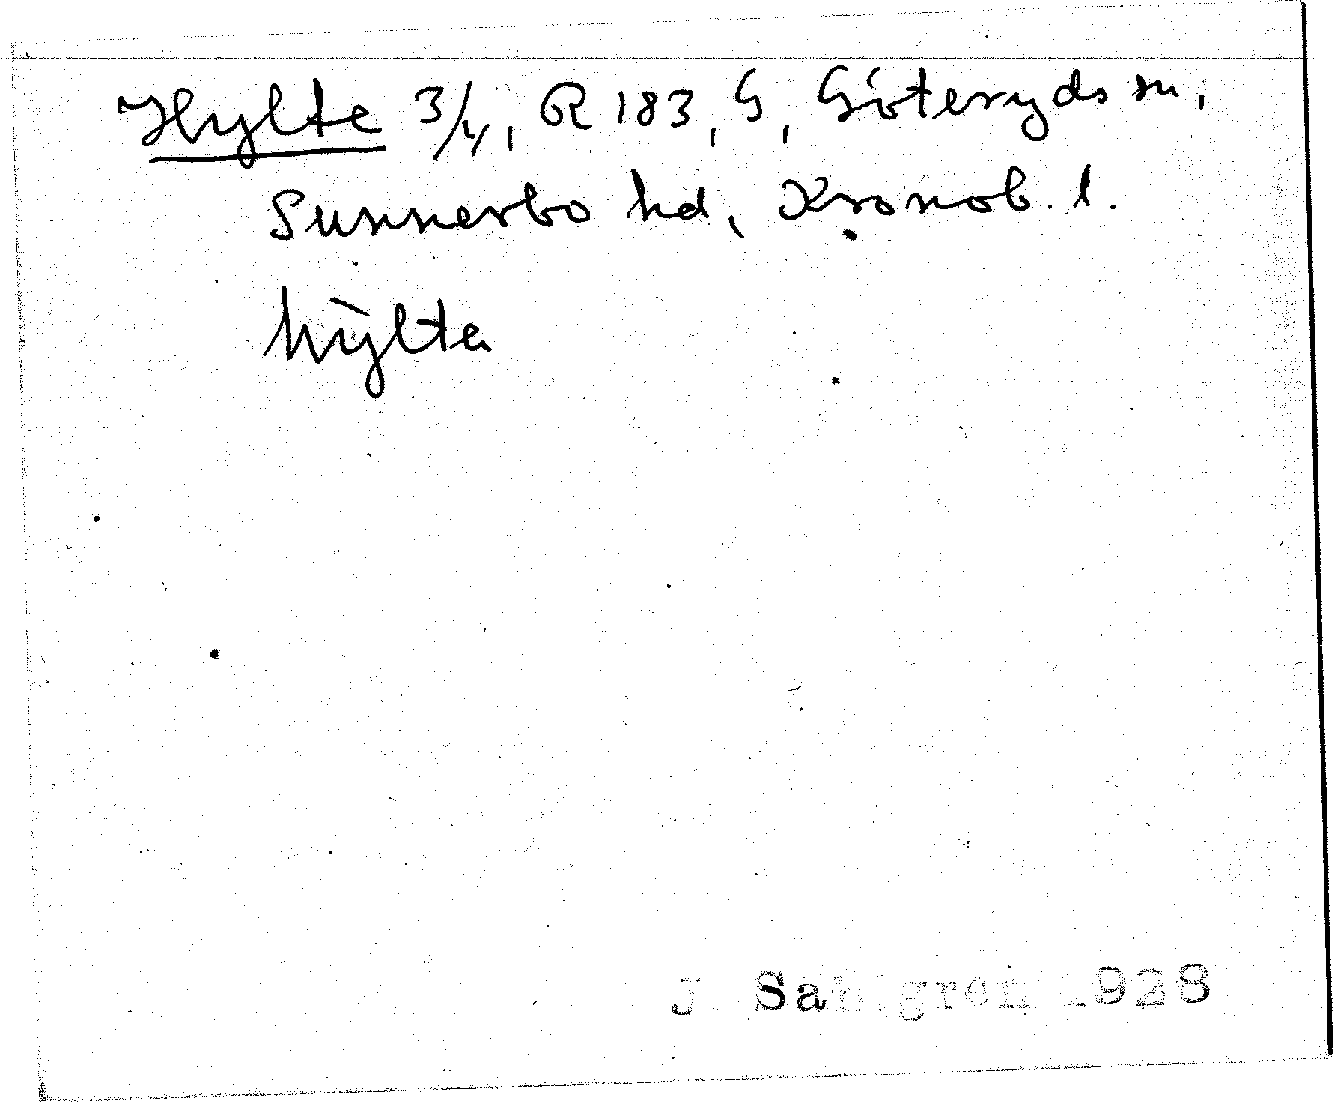 Hylte 3/4, R 183, G, Göteryds sn,
Sunnerbo hd, Kronob. l.
hỳlta
J Sahlgren 1928